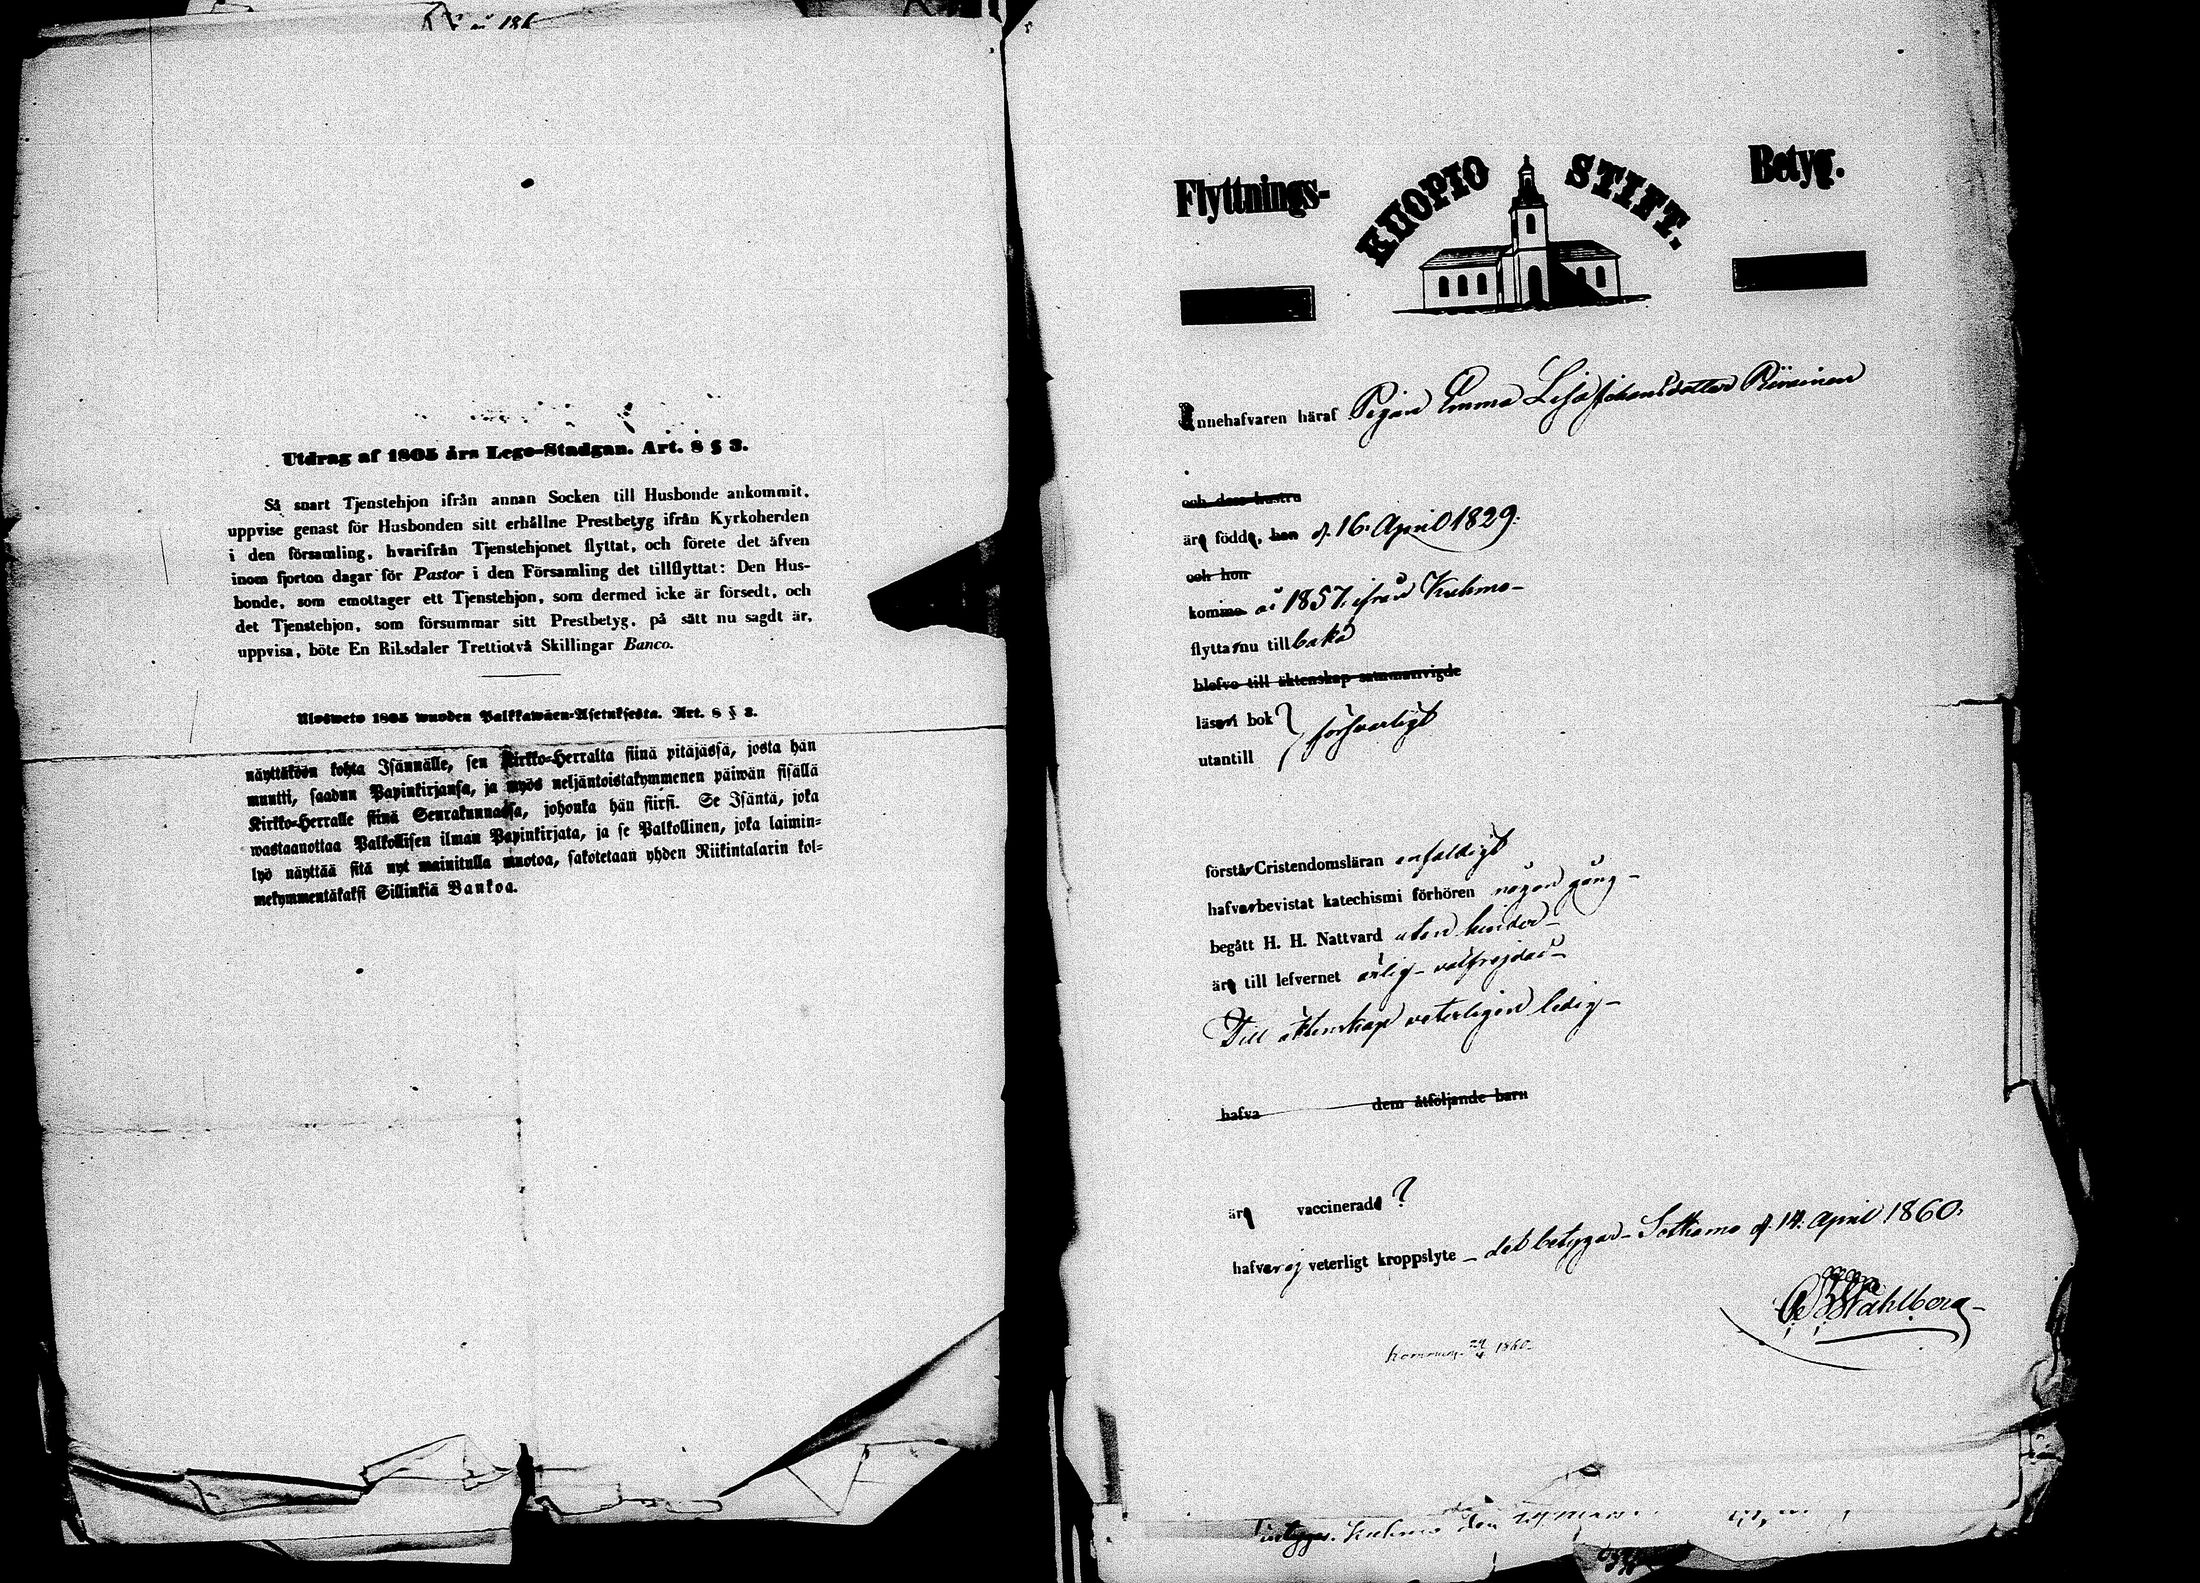 Utdrag af 1805 års Lego-Stadgan. Art. 8 § 3.
Så snart Tjenstehjon ifrån annan Socken till Husbonde ankommit,
uppvise genast för Husbonden sitt erhållne Prestbetyg ifrån Kyrkoherden
i den församling, hvarifrån Tjenstehjonet flyttat, och förete det äfven
inom fjorton dagar för Pastor i den Församling det tillflyttat: Den Hus-
bonde, som emottager ett Tjenstehjon, som dermed icke är försedt, och
det Tjenstehjon, som försummar sitt Prestbetyg, på sätt nu sagdt är,
uppvisa, böte En Riksdaler Trettiotvå Skillingar Banco.
Ulosweto 1805 wuoden Palkkawäen-Asetuksesta. Art. 8 § 3.
näyttäköön kohta Isännälle, sen Kirkko-Herralta siinä pitäjässä, josta hän
muutti, saadun Papinkirjansa, ja myös neljäntoistakymmenen päiwän sisällä
Kirkko-Herralle siinä Seurakunnassa, johonka hän siirsi. Se Isäntä, joka
wastaanottaa Palkollisen ilman Papinkirjata, ja se Palkollinen, joka laimin-
lyö näyttää sitä nyt mainitulla muotoa, sakotetaan yhden Riikintalarin kol-
mekymmentäkaksi Sillinkiä Bankoa.
Flyttnings- KUOPIO STIFT. Betyg.
Innehafvaren häraf Pigan Emma Lisa Johansdotter
och dess hustru
är född, hon d. 16. April 1829.
och hon
kommo år 1857, ifrån Kuhmo -
flyttar nu till baka
blefvo till äktenskap sammanvigde
läser i bok
utantill försvarligt
förstår Cristendomsläran enfaldigt
hafver bevistat katechismi förhören någon gång -
begått H. H. Nattvard utan hinder -
är till lefvernet ärlig - välfrejdad -
Till äktenskap veterligen ledig -
hafva dem åtföljande barn
är vaccinerad ?
hafver ej veterligt kroppslyte - det betygar - Sotkamo d. 14. April 1860.
Ståhlberg -
1860
Kuhmo den